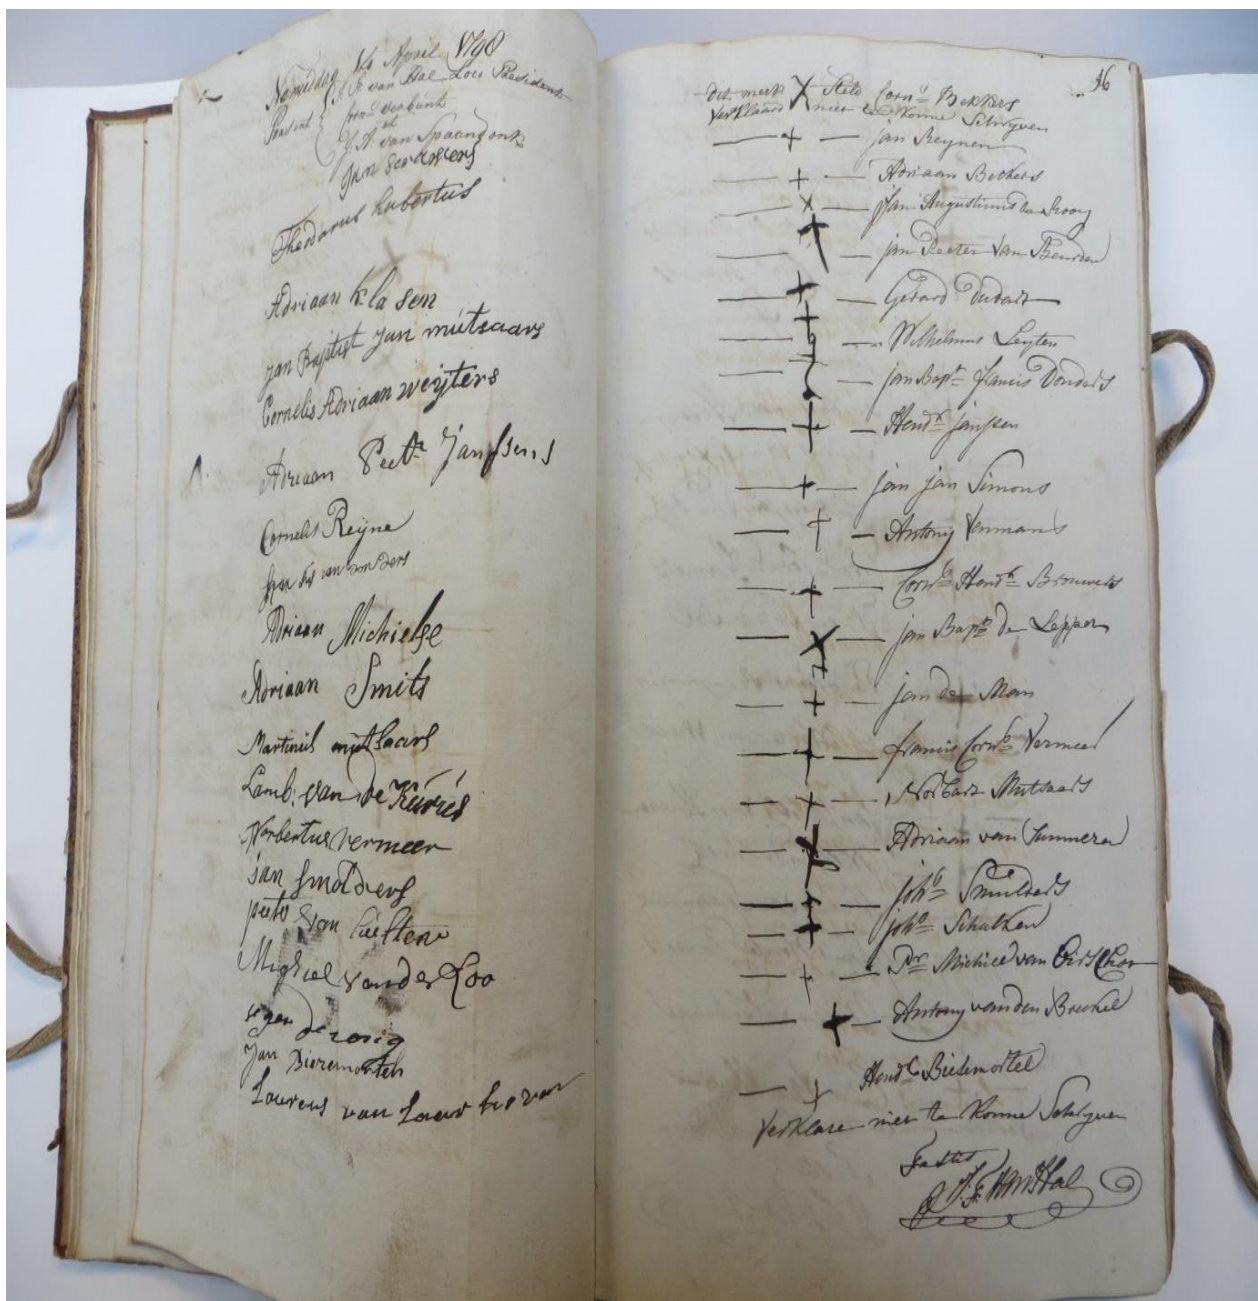 Namiddag 14 April 1798
Present J. F. van Hal Loco President
et
J. A. van Spaandonk
Jan
Theodorus hubertus
Adriaan klasen
jan Baptist Jan mutsaars
Cornelis Adriaan weijters
Adriaan Peetr Janssens
Cornelis Reijne
van donders
Adriaan Michielse
Adriaan Smits
Martinus mutsaars
Lamb. van de
Norbertus vermeer
jan smolders
peeter van
Mighiel van de Loo
de rooij
Jan Bieremortel
Lourens van
36
dit merk X Steld Corns Bekkers
verklaard niet te konne Schryven
— + — jan Reynen
— + — Adriaan Beckers
— X — Jan Augustinus de Rooy
— + — jan Peeter van Beurden
— + — Gerard
— + — Wilhelmus Leyten
— — jan Bapt francis Donders
— + — Hendk janssen
— + — jan jan Simons
— + — Antony Vermans
— + — Corns Hendk Brouwers
— X — jan Bapt de Lepper
— + — jan de Man
— + — francis Corns Vermeer
— + — Norbart Mutsaars
— X — Adriaan van Summeren
— + — johs Smulders
— + — johs Schalken
— + — Pr Michiel van Oirschot
— + — Antony van den Breekel
— + — Hendk Bielmortel
Verklare niet te konne Schryven
Testis
J. F. van Hal